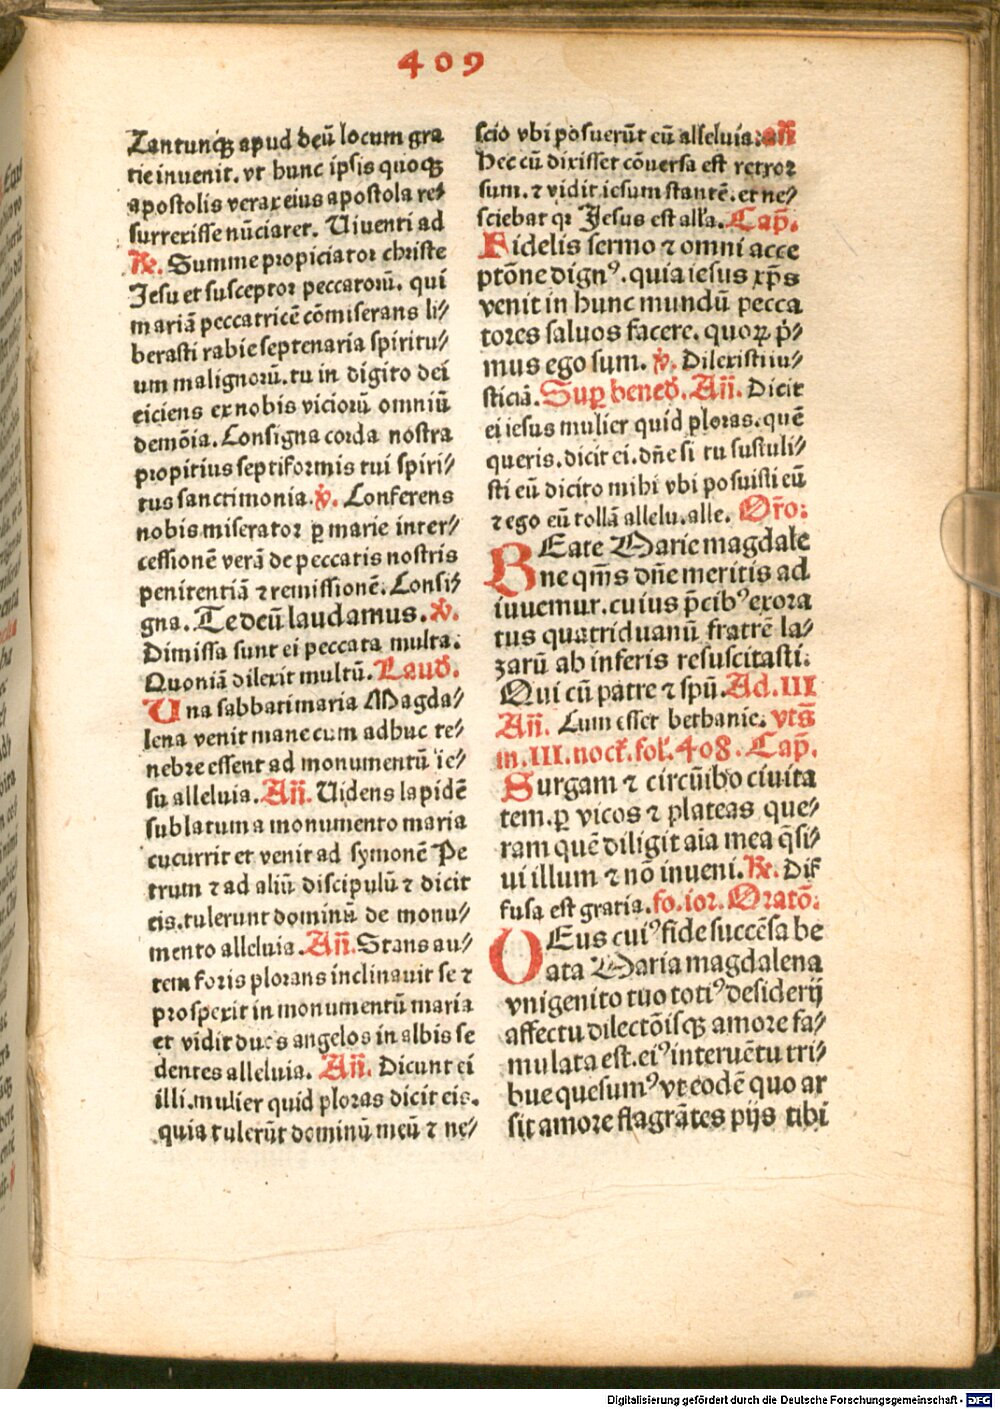 409
Tantumqꝫ apud deū locum gra
tie inuenit. vt hunc ipsis quoqꝫ
apostolis verax eius apostola re⸗
surrexisse nūciaret. Uiuenti ad
℟. Summe propiciator christe
Jesu et susceptor peccatorū. qui
mariā peccatricē cōmiserans li⸗
berasti rabie septenaria spiritu⸗
um malignorū. tu in digito dei
eiciens ex nobis viciorū omniū
demōia. Consigna corda nostra
propitius septiformis tui spiri⸗
tus sanctimonia. ℣. Conferens
nobis miserator ꝑ marie inter⸗
cessionē verā de peccatis nostris
penitentiā ⁊ remissionē. Consi⸗
gna. Te deū laudamus. ℣.
Dimissa sunt ei peccata multa.
Quoniā dilexit multū. Laud̄.
Una sabbati maria Magda⸗
lena venit mane cum adhuc te⸗
nebre essent ad monumentū ie⸗
su alleluia. Añ. Uidens lapidē
sublatum a monumento maria
cucurrit et venit ad symonē Pe
trum ⁊ ad aliū discipulū ⁊ dicit
eis. tulerunt dominū de monu⸗
mento alleluia. Añ. Stans au⸗
tem foris plorans inclinauit se ⁊
prospexit in monumentū maria
et vidit duos angelos in albis se
dentes alleluia. Añ. Dicunt ei
illi. mulier quid ploras dicit eis.
quia tulerūt dominū meū ⁊ ne⸗
scio vbi posuerūt eū alleluia: añ
Hec cū dixisset cōuersa est retror
sum. ⁊ vidit iesum stantē. et ne⸗
sciebat qꝛ Jesus est all'a. Cap̄.
Fidelis sermo ⁊ omni acce
ptōne dignꝰ. quia iesus xp̄s
venit in hunc mundū pecca
tores saluos facere. quoꝝ p̍⸗
mus ego sum. ℣. Dilexisti iu⸗
sticiā. Suꝑ bened̄. Añ. Dicit
ei iesus mulier quid ploras. quē
queris. dicit ei. dn̄e si tu sustuli⸗
sti eū dicito mihi vbi posuisti eū
⁊ ego eū tollā allelu. alle. Or̄o:
BEate Marie magdale
ne qm̄s dn̄e meritis ad
iuuemur. cuius p̄cibꝰ exora
tus quatriduanū fratrē la⸗
zarū ab inferis resuscitasti:
Qui cū patre ⁊ spū. Ad. III
Añ. Cum esset bethanie. vts̄
in. III. noct̄. fol'. 408. Cap̄.
Surgam ⁊ circūibo ciuita
tem. ꝑ vicos ⁊ plateas que⸗
ram quē diligit aīa mea q̄si⸗
ui illum ⁊ nō inueni. ℟. Dif
fusa est gratia. fo. ior. Oratō:
DEus cuiꝰ fide succēsa be
ata Maria magdalena
vnigenito tuo totiꝰ desiderij
affectu dilectōisqꝫ amore fa⸗
mulata est. eiꝰ interuētu tri⸗
bue quesumꝰ vt eodē quo ar
sit amore flagrātes pijs tibi
Digitalisierung gefördert durch die Deutsche Forschungsgemeinschaft - DFG